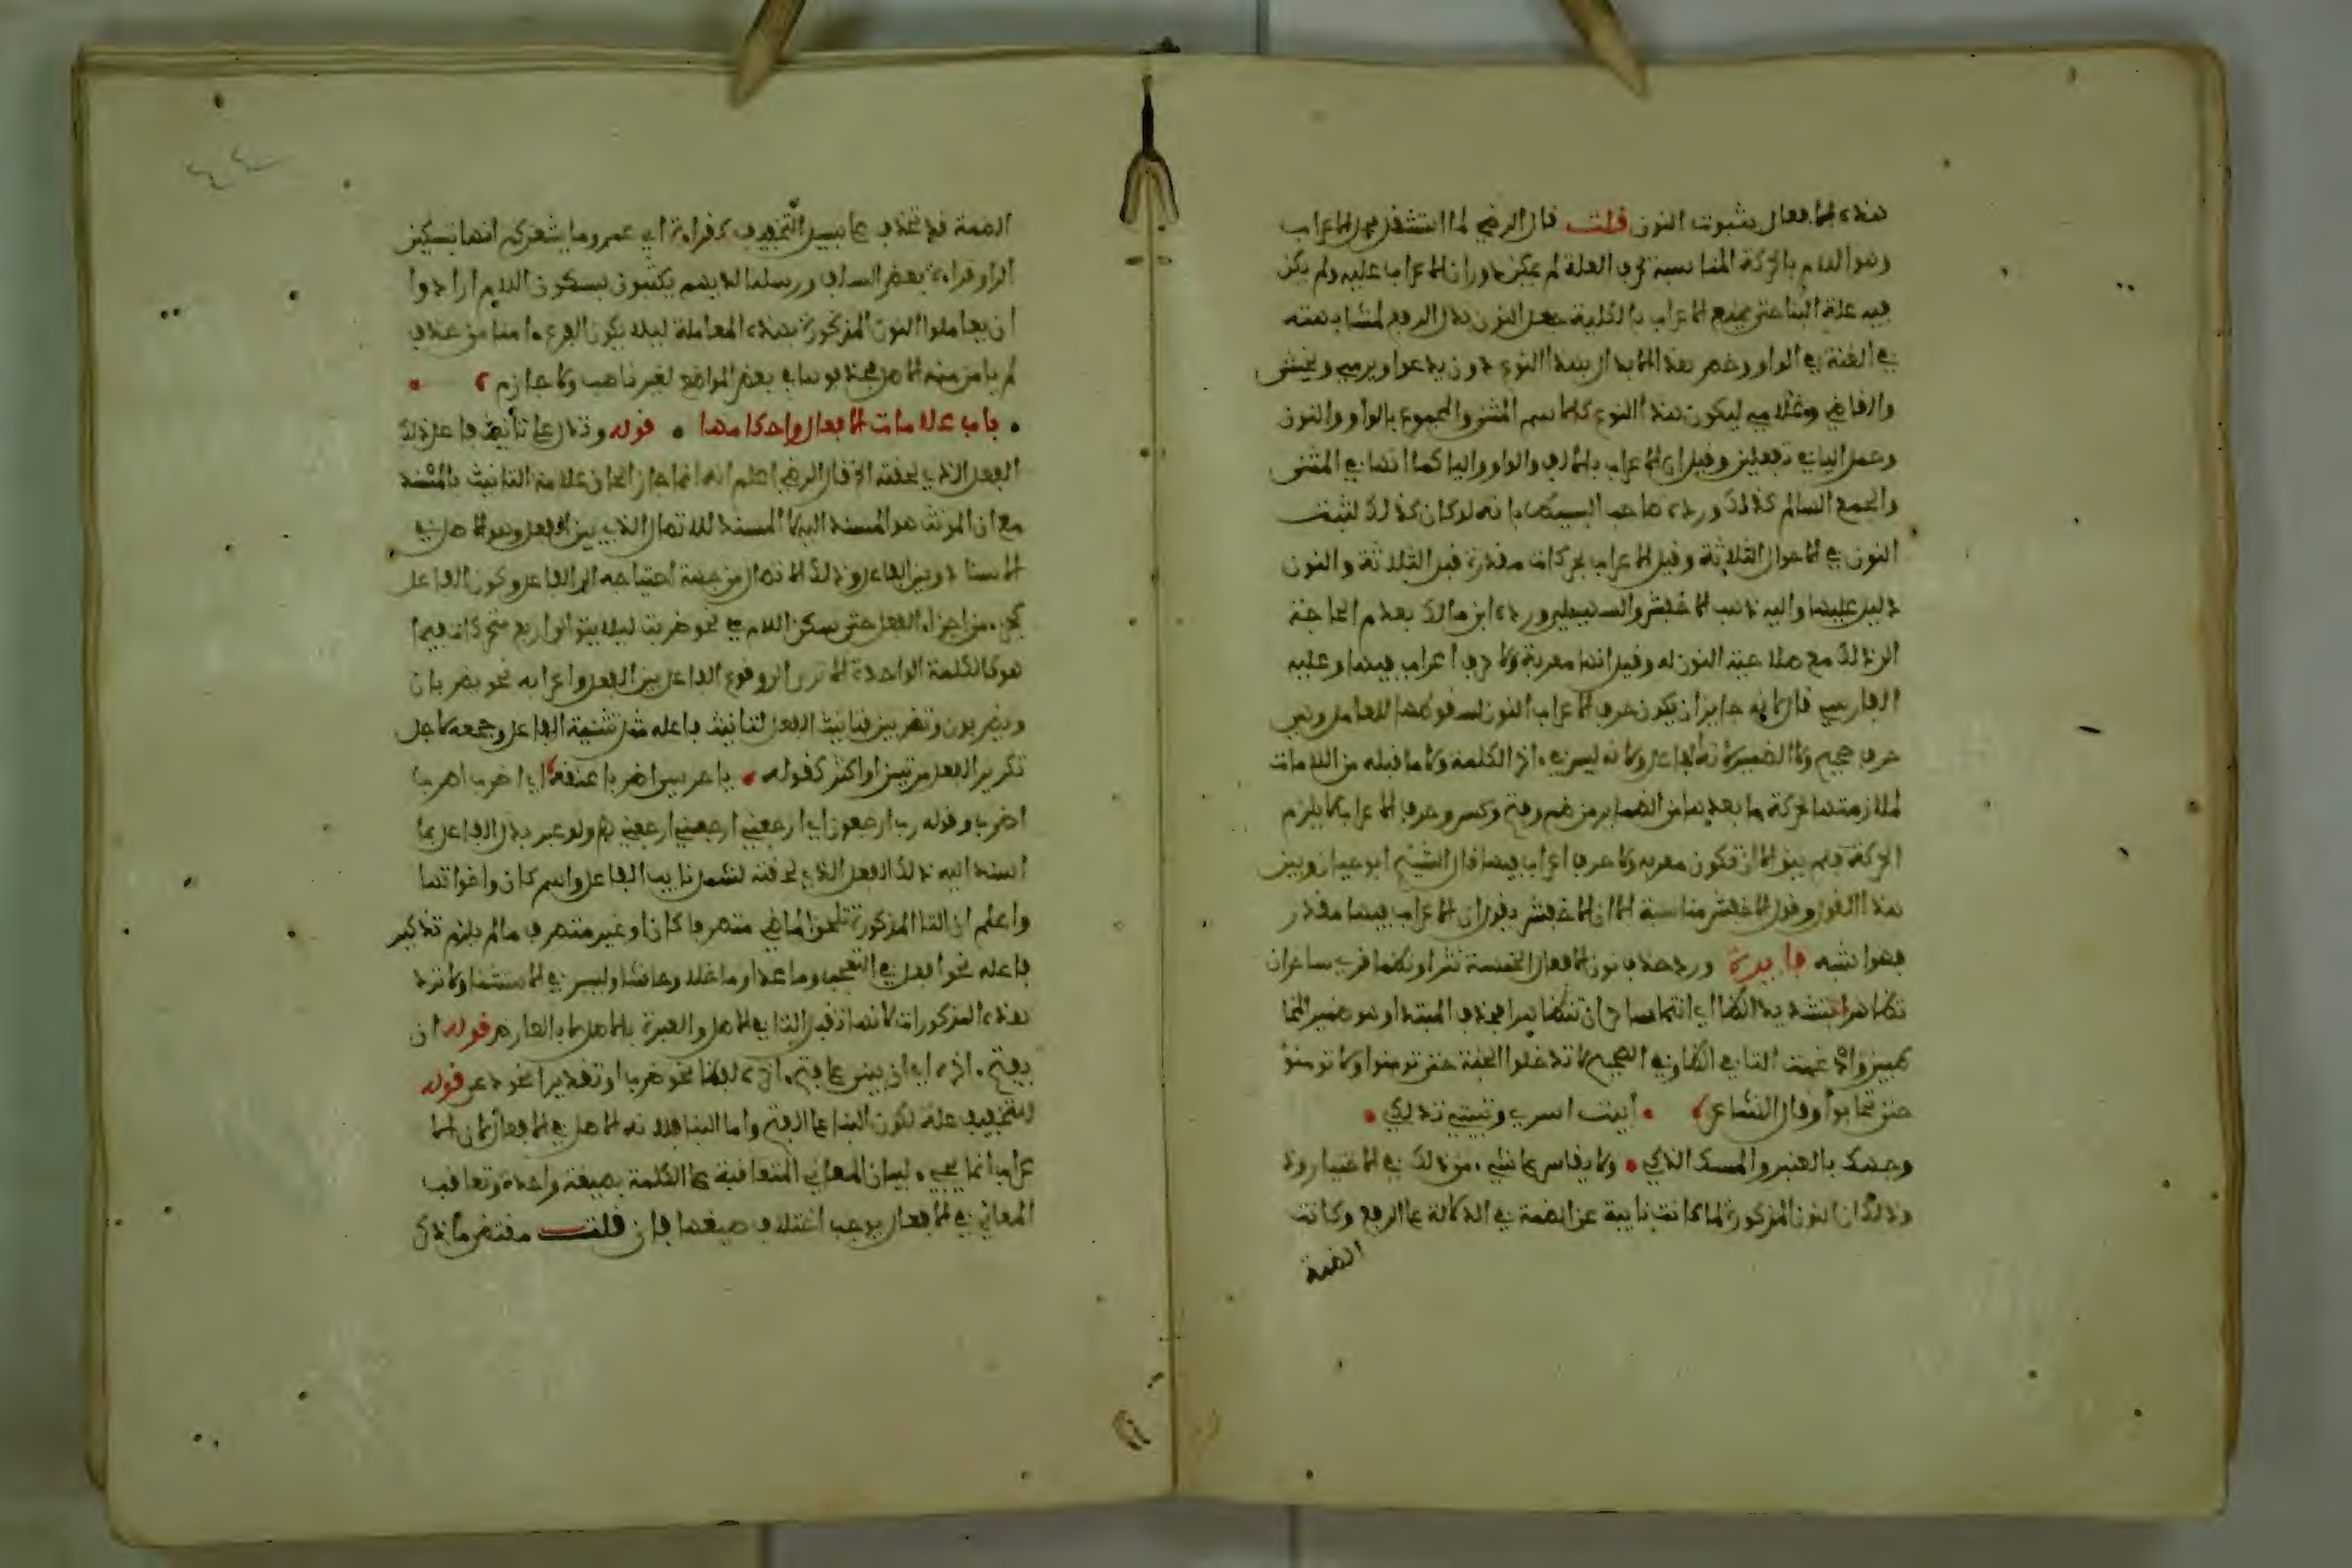 هذه الافعال بثبوت النون قلت قال الرضي لما اشتغل محل الاعراب
وهو اللام بالحركة المناسبة لحرف العلة لم يمكن دوران الاعراب عليه ولم يكن
فيه علة البنا حتى يمنع الاعراب بالكلية جعل النون بدل الرفع لمشابهته
في الغنة في الواو وخص هذا الابدال بهذا النوع دون يدعوا ويرمي ويخشى
والقاضي وغلامي ليكون هذا النوع كالاسم المثنى والمجموع بالواو والنون
وعمل الياء في تفعلين وقيل ان الاعراب بالالف والواو واليا كما انها في المثنى
والجمع السالم كذلك ورده صاحب البسيط بانه لو كان كذلك لثبت
النون في الاحوال الثلاثة وقيل الاعراب بحركات مقدرة قبل الثلاثة والنون
دليل عليها واليه ذهب الاخفش والسهيلي ورده ابن مالك بعدم الحاجة
الى ذلك مع صلاحية النون له وقيل انها معربة ولا حرف اعراب فيها وعليه
الفارسي قال لانه جايز ان يكون حرف الاعراب النون لسقوطها للعامل وهي
حرف صحيح ولا الضمير لانه الفاعل ولانه ليس في اخر الكلمة ولا ما قبله من اللامات
لملازمتها لحركة ما بعدها من الضماير من ضم وفتح وكسر وحرف الاعراب لا يلزم
الحركة فلم يبق الا ان تكون معربة ولا حرف اعراب فيها قال الشيخ ابو حيان وبين
هذا القول وقول الاخفش مناسبة الا ان الاخفش يقول ان الاعراب فيها مقدر
فهو اشبه فايدة ورد حذف نون الافعال الخمسة نثرا ونظما قرى ساحران
تظاهرا بتشديد الظا اي انتما ساحران تتظاهرا فحذف المبتدا وهو ضمير المخا
طبين وادغمت التا في الظا وفي الصحيح لا تدخلوا الجنة حتى تومنوا ولا تومنو
حتى تحابوا وقال الشاعر ابيت اسري وتبيتي تدلكي
وجهك بالعنبر والمسك الذكي ولا يقاس على شيء من ذلك في الاختيار وذ
وذلك ان النون المذكورة لما كانت نايبة عن الضمة في الدلالة على الرفع وكانت
الضمة
الضمة قد تحذف على سبيل التخفيف كقراءة ابي عمرو وما يشعركم انها بتسكين
الرا وقراءة بعض السلف ورسلنا لديهم يكتبون بسكون اللام ارادوا
ان يعاملوا النون المذكورة بهذه المعاملة ليلا يكون الفرع امنا من حذف
لم يامن منه الاصل فحذفوها في بعض المواضع لغير ناصب ولا جازم
باب علامات الافعال واحكامها قوله وتدل على تأنيث فاعل ذلك
الفعل الذي لحقته الخ قال الرضي اعلم انه انما جاز الحاق علامة التانيث بالمسند
مع ان المونث هو المسند اليه لا المسند للاتصال الذي بين الفعل وهو الاصل في
الاسناد وبين الفاعل وذلك الاتصال من جهة احتياجه الى الفاعل وكون الفاعل
كجزء من اجزاء الفعل حتى سكن اللام في نحو ضربت ليلا يتوالى اربع متحركات فيما
هو كالكلمة الواحدة الا ترى الى وقوع الفاعل بين الفعل واعرابه نحو يضربان
ويضربون وتضربين فتانيث الفعل لتانيث فاعله مثل تثنية الفاعل وجمعه لاجل
تكرير الفعل مرتين او اكثر كقوله يا حرسي اضربا عنقه اي اضرب اضربا
اضربا وقوله رب ارجعون اي ارجعني ارجعني ارجعني ولو عبر بدل الفاعل بما
اسند اليه ذلك الفعل الذي لحقته لشمل نايب الفاعل واسم كان واخواتها
واعلم ان التا المذكورة تلحق الماضي متصرفا كان او غير متصرف ما لم يلزم تذكير
فاعله نحو افعل في التعجب وما عدا وما خلا وحاشا وليس في الاستثنا ولا ترد
هذه المذكورات لانها تقبل التا في الاصل والعبرة بالاصل لا بالعارض قوله ان
يفتح اخره اي ان يبنى على فتح اخره لفظا نحو ضربا او تقديرا نحو دعى قوله
للتخفيف علة لكون البنا على الفتح واما البنا فلانه الاصل في الافعال لان الا
عراب انما يجيء لبيان المعاني المتعاقبة على الكلمة بصيغة واحدة وتعاقب
المعاني في الافعال يوجب اختلاف صيغها فان قلت مقتضى ما ذكر